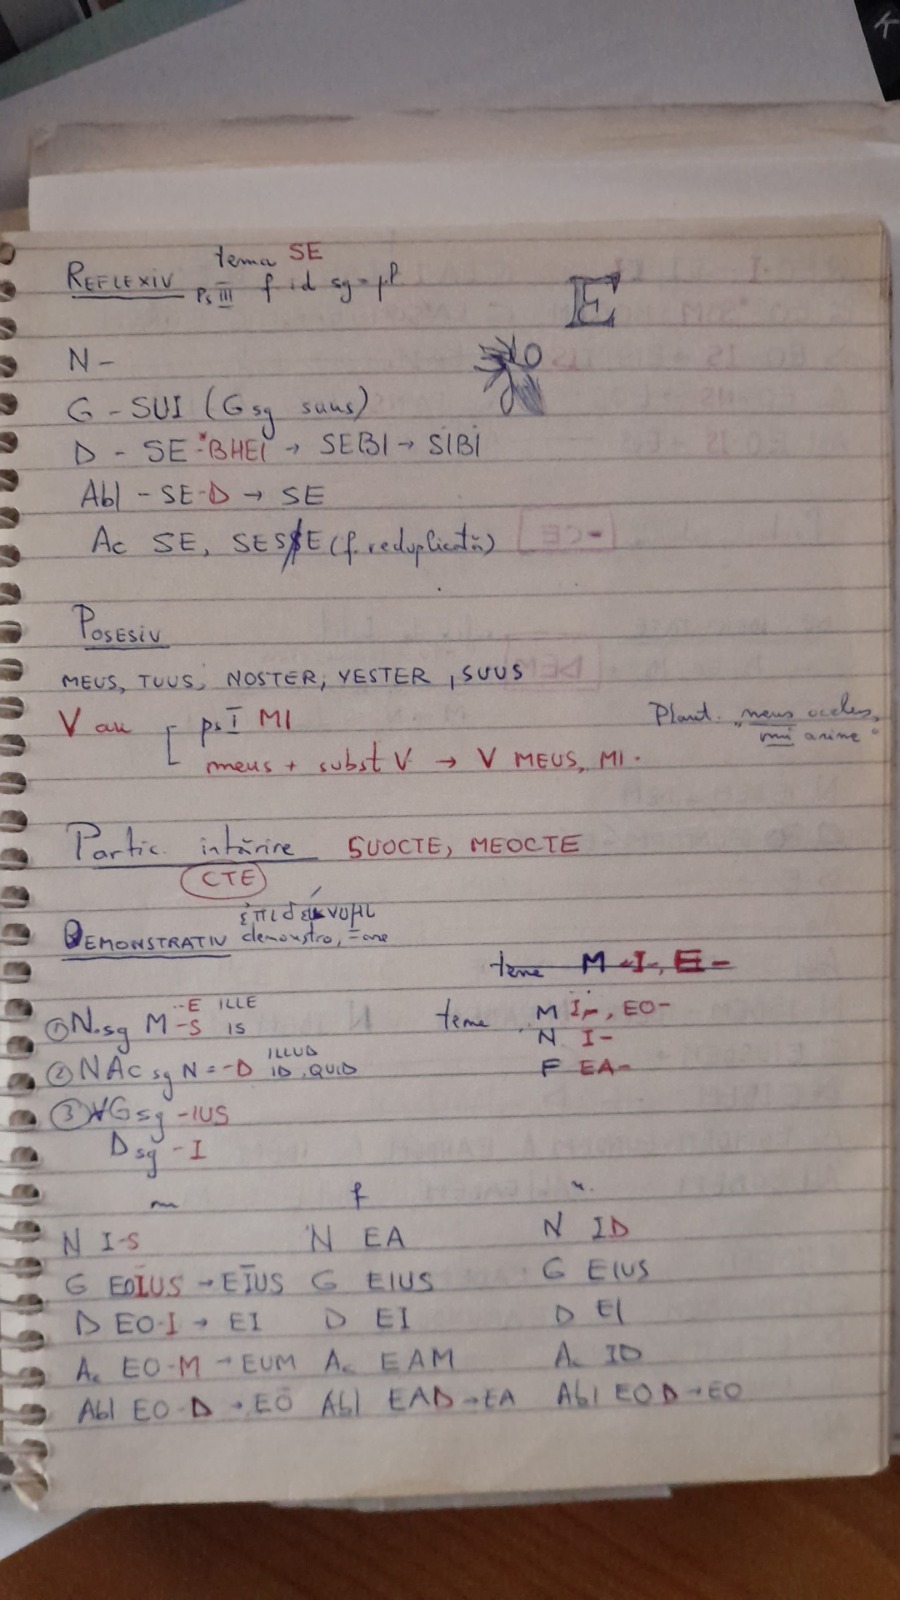 tema SE
REFLEXIV ps III f id sg = pl
E
N -
G - SUI (G sg suus)
D - SE-*BHEI → SEBI → SIBI
Abl - SE-D → SE
Ac SE, SESE (f. reduplicată)
POSESIV
MEUS, TUUS, NOSTER, VESTER, SUUS
V au ps I MI
Plaut. „meus
mi anime"
meus + subst V → V MEUS, MI.
Partic. întărire SUOCTE, MEOCTE
CTE
ἐπιδείκνυμι
DEMONSTRATIV demonstro, -are
teme M -I-, E-
-E ILLE
① N. sg M -S IS
teme M I-, EO-
N I-
② NAc sg N = -D ILLUD
ID, QUID
F EA-
③ G sg -IUS
D sg - I
m f n.
N I-S N EA N ID
G EOĪUS → EĪUS G EIUS G EIUS
D EO-I → EI D EI D EI
Ac EO-M → EUM Ac EAM Ac ID
Abl EO-D → EŌ Abl EAD → EA Abl EOD → EO